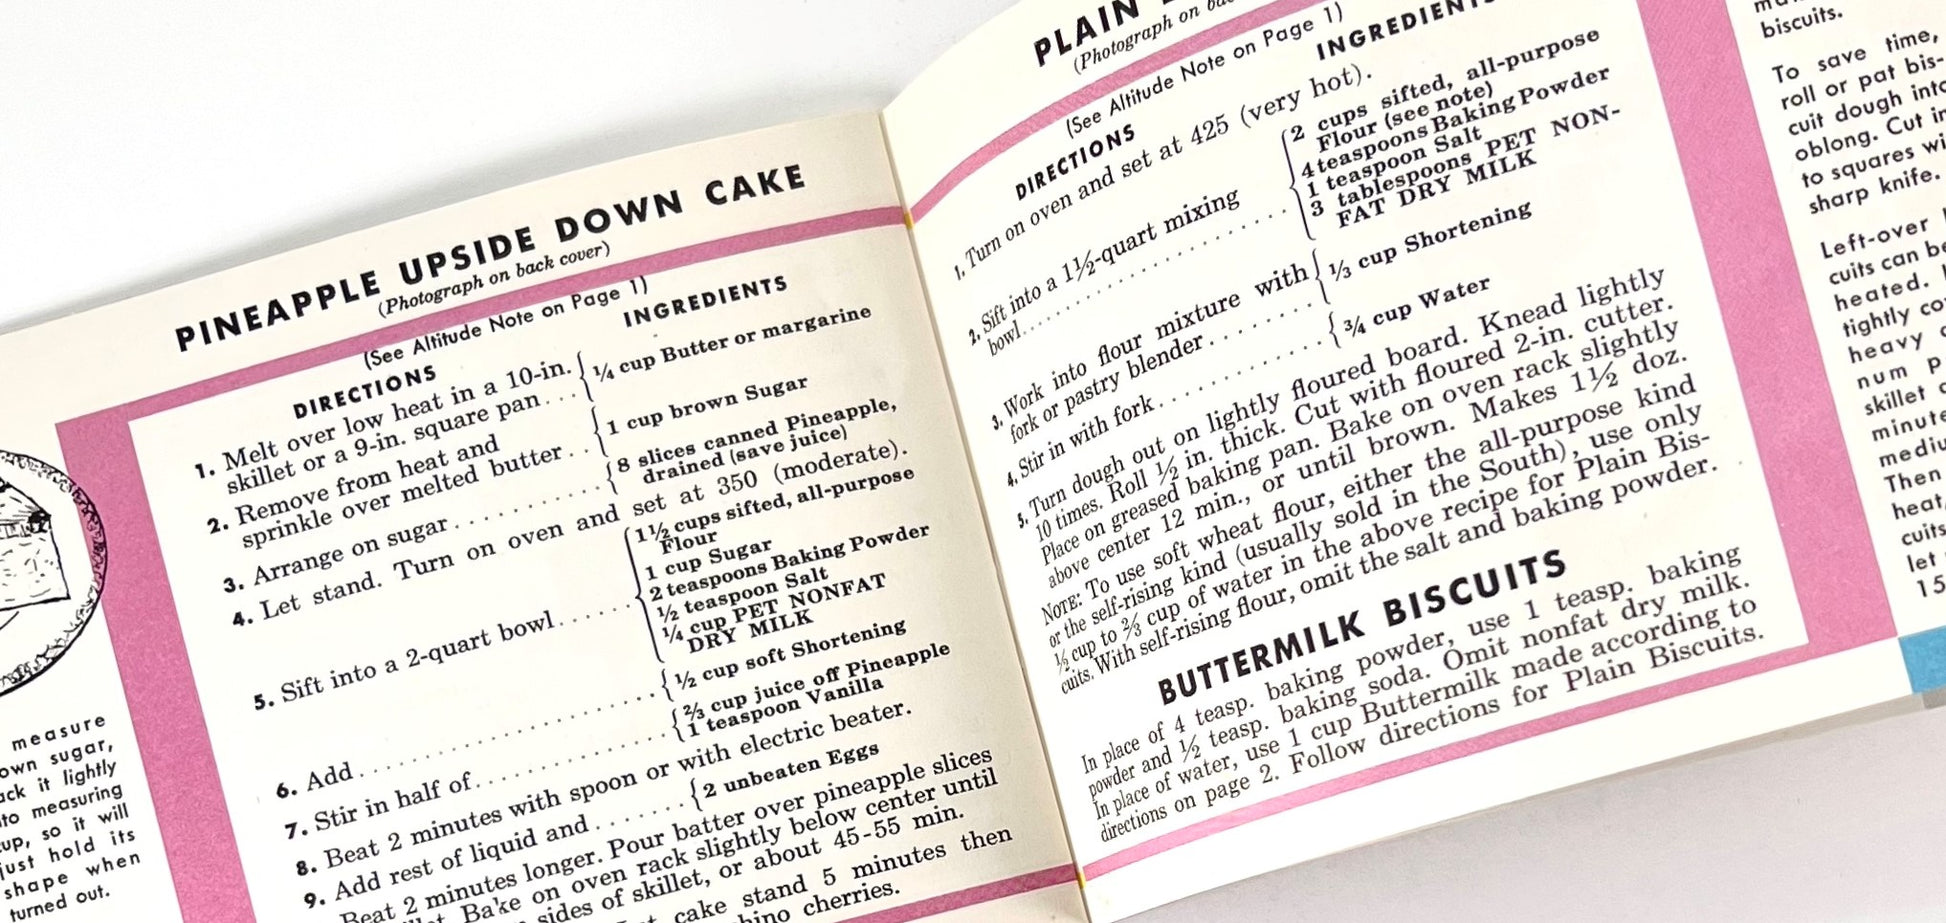 measure
own sugar,
lightly
to measuring
up, so it will
just hold its
shape when
turned out.
PINEAPPLE UPSIDE DOWN CAKE
(Photograph on back cover)
(See Altitude Note on Page 1)
DIRECTIONS INGREDIENTS
1. Melt over low heat in a 10-in.
skillet or a 9-in. square pan... { ¼ cup Butter or margarine
2. Remove from heat and
sprinkle over melted butter.. { 1 cup brown Sugar
3. Arrange on sugar.............. { 8 slices canned Pineapple,
drained (save juice)
4. Let stand. Turn on oven and set at 350 (moderate).
5. Sift into a 2-quart bowl...... { 1½ cups sifted, all-purpose
Flour
1 cup Sugar
2 teaspoons Baking Powder
½ teaspoon Salt
¼ cup PET NONFAT
DRY MILK
6. Add.......................... { ½ cup soft Shortening
7. Stir in half of................. { ⅔ cup juice off Pineapple
1 teaspoon Vanilla
8. Beat 2 minutes with spoon or with electric beater.
9. Add rest of liquid and....... { 2 unbeaten Eggs
Beat 2 minutes longer. Pour batter over pineapple slices
Bake on oven rack slightly below center until
sides of skillet, or about 45-55 min.
cake stand 5 minutes then
cherries.
PLAIN
(Photograph on
(See Altitude Note on Page 1)
DIRECTIONS INGREDIENTS
1. Turn on oven and set at 425 (very hot).
2. Sift into a 1½-quart mixing
bowl........................ { 2 cups sifted, all-purpose
Flour (see note)
4 teaspoons Baking Powder
1 teaspoon Salt
3 tablespoons PET NON-
FAT DRY MILK
3. Work into flour mixture with
fork or pastry blender........ { ⅓ cup Shortening
4. Stir in with fork............... { ¾ cup Water
5. Turn dough out on lightly floured board. Knead lightly
10 times. Roll ½ in. thick. Cut with floured 2-in. cutter.
Place on greased baking pan. Bake on oven rack slightly
above center 12 min., or until brown. Makes 1½ doz.
NOTE: To use soft wheat flour, either the all-purpose kind
or the self-rising kind (usually sold in the South), use only
½ cup to ⅔ cup of water in the above recipe for Plain Bis-
cuits. With self-rising flour, omit the salt and baking powder.
BUTTERMILK BISCUITS
In place of 4 teasp. baking powder, use 1 teasp. baking
powder and ½ teasp. baking soda. Omit nonfat dry milk.
In place of water, use 1 cup Buttermilk made according to
directions on page 2. Follow directions for Plain Biscuits.
biscuits.
To save time,
roll or pat bis-
cuit dough into
oblong. Cut in
to squares wi
sharp knife.
Left-over
cuits can be
heated.
tightly co
heavy
num
skillet
minute
mediu
Then
heat,
cuits
let
15